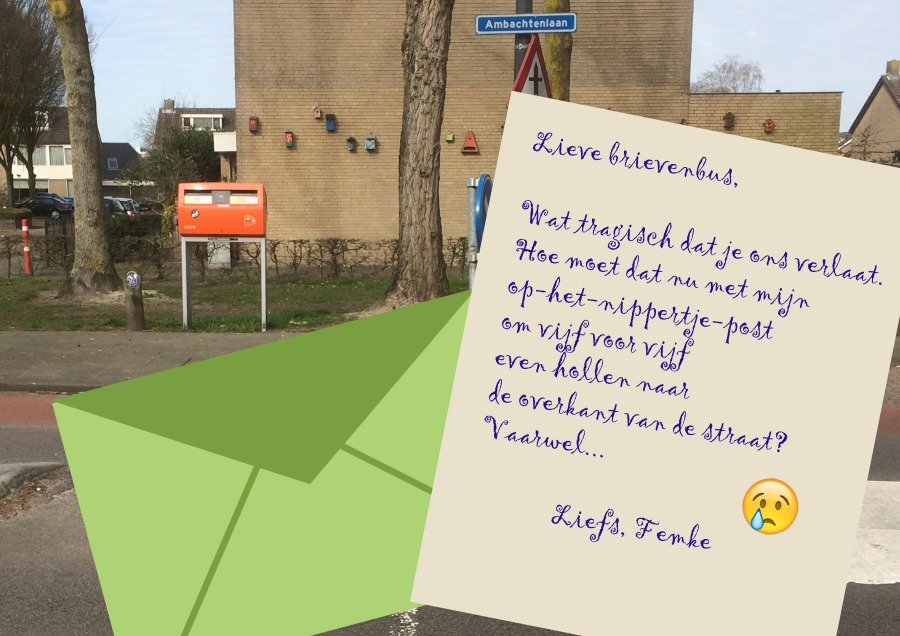 Ambachtenlaan
Lieve brievenbus,
Wat tragisch dat je ons verlaat.
Hoe moet dat nu met mijn
op-het-nippertje-post
om vijf voor vijf
even hollen naar
de overkant van de straat?
Vaarwel...
Liefs, Femke